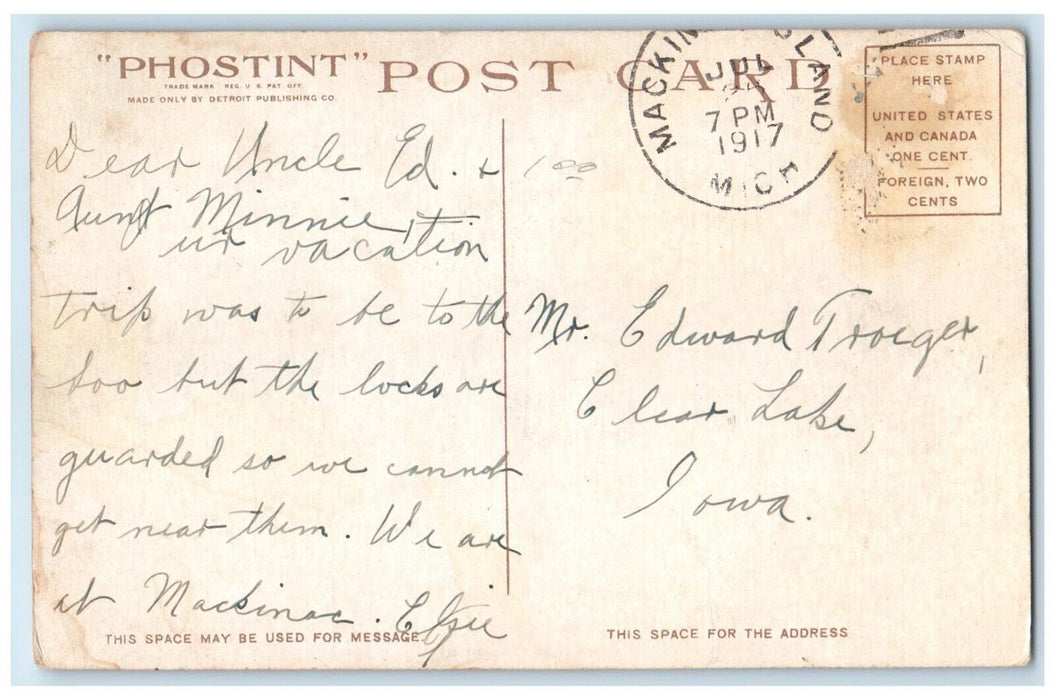 "PHOSTINT" POST CARD
TRADE MARK REG. U.S. PAT. OFF.
MADE ONLY BY DETROIT PUBLISHING CO.
MACKIN LAND
JUL
7 PM
1917
MICH
PLACE STAMP
HERE
UNITED STATES
AND CANADA
ONE CENT.
FOREIGN, TWO
CENTS
1 00
Dear Uncle Ed. &
Aunt Minnie,
ur vacation
trip was to be to the
Soo but the locks are
guarded so we cannot
get near them. We are
at Mackinac. Elsie
THIS SPACE MAY BE USED FOR MESSAGE
Mr. Edward Troeger,
Clear Lake,
Iowa.
THIS SPACE FOR THE ADDRESS